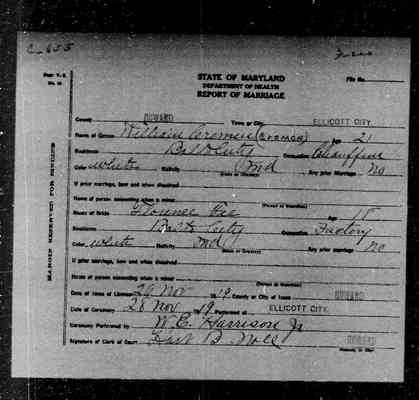 C-655
Form V. S.
STATE OF MARYLAND
DEPARTMENT OF HEALTH
REPORT OF MARRIAGE
File No.
County HOWARD Town or City ELLICOTT CITY
Name of Groom William Cromer (CROMER) Age 21
Residence Balto City Occupation Chauffeur
Color White Nativity Md (State or Country) Any prior Marriage No
If prior marriage, how and when dissolved
Name of person consenting when a minor (Parent or Guardian)
Name of Bride Florence Fee Age
Residence Balto City Occupation Factory
Color white Nativity Md (State or Country) Any prior marriage no
If prior marriage, how and when dissolved
Name of person consenting when a minor (Parent or Guardian)
Date of Issue of License 26 Nov 19 County or City of Issue HOWARD
Date of Ceremony 26 Nov 19 Performed at ELLICOTT CITY
Ceremony Performed by W. E. Harrison Jr
Signature of Clerk of Court HOWARD
MARGIN RESERVED FOR BINDING